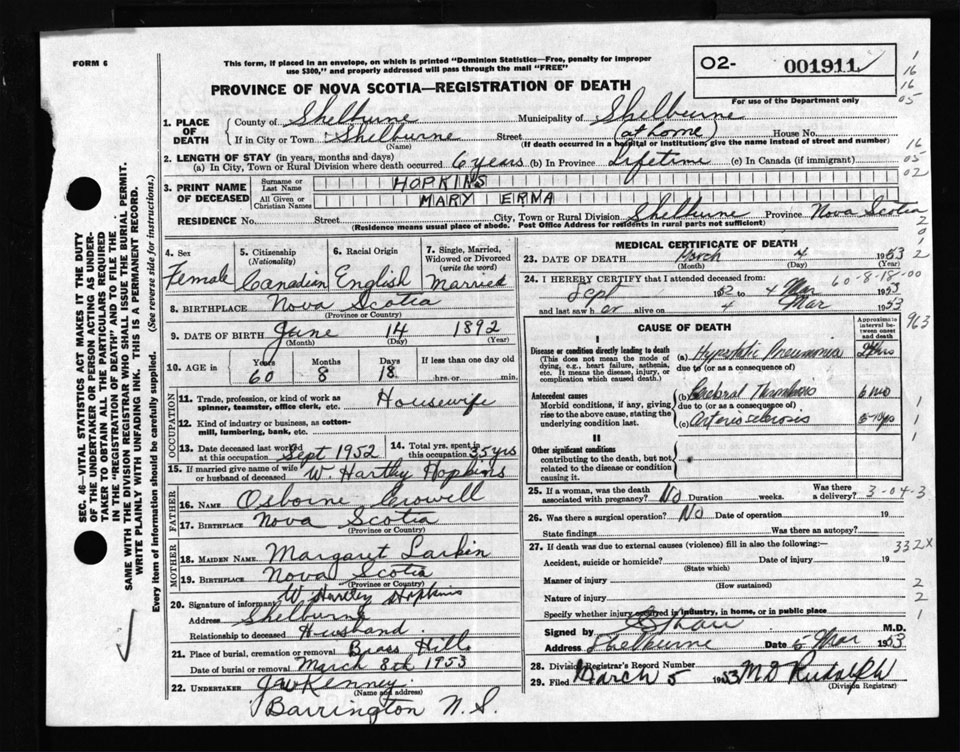 FORM 6
This form, if placed in an envelope, on which is printed "Dominion Statistics—Free, penalty for improper
use $300," and properly addressed will pass through the mail "FREE"
O2- 001911
For use of the Department only
PROVINCE OF NOVA SCOTIA—REGISTRATION OF DEATH
1. PLACE OF DEATH
County of Shelburne Municipality of Shelburne
If in City or Town Shelburne Street (at home) House No.
(Name) (If death occurred in a hospital or institution, give the name instead of street and number)
2. LENGTH OF STAY (in years, months and days)
(a) In City, Town or Rural Division where death occurred 6 years (b) In Province Lifetime (c) In Canada (if immigrant)
3. PRINT NAME OF DECEASED
Surname or Last Name HOPKINS
All Given or Christian Names MARY ERMA
RESIDENCE No. Street City, Town or Rural Division Shelburne Province Nova Scotia
(Residence means usual place of abode. Post Office Address for residents in rural parts not sufficient)
4. Sex Female
5. Citizenship (Nationality) Canadian
6. Racial Origin English
7. Single, Married, Widowed or Divorced (write the word) Married
8. BIRTHPLACE Nova Scotia
(Province or Country)
9. DATE OF BIRTH June 14 1892
(Month) (Day) (Year)
10. AGE in Years 60 Months 8 Days 18 If less than one day old hrs. or min.
OCCUPATION
11. Trade, profession, or kind of work as spinner, teamster, office clerk, etc. Housewife
12. Kind of industry or business, as cotton-mill, lumbering, bank, etc.
13. Date deceased last worked at this occupation Sept 1952
14. Total yrs. spent in this occupation 35 yrs
15. If married give name of wife or husband of deceased W. Hartley Hopkins
FATHER
16. NAME Osborne Crowell
17. BIRTHPLACE Nova Scotia
(Province or Country)
MOTHER
18. MAIDEN NAME Margaret Larkin
19. BIRTHPLACE Nova Scotia
(Province or Country)
20. Signature of informant W. Hartley Hopkins
Address Shelburne
Relationship to deceased Husband
21. Place of burial, cremation or removal Brass Hill
Date of burial or removal March 8th 1953
22. UNDERTAKER J W Kenney
(Name and address)
Barrington N.S.
MEDICAL CERTIFICATE OF DEATH
23. DATE OF DEATH March 4 1953
(Month) (Day) (Year)
24. I HEREBY CERTIFY that I attended deceased from:
60-8-18-00
Sept 1952 to 4 Mar 1953
and last saw her alive on 4 Mar 1953
963
CAUSE OF DEATH
Approximate interval between onset and death
I
Disease or condition directly leading to death
(This does not mean the mode of dying, e.g., heart failure, asthenia, etc. It means the disease, injury, or complication which caused death.)
(a) Hypostatic Pneumonia
due to (or as a consequence of)
Antecedent causes
Morbid conditions, if any, giving rise to the above cause, stating the underlying condition last.
(b) Cerebral Thrombosis 6 mo
due to (or as a consequence of)
(c) Arteriosclerosis 5-10 yrs
II
Other significant conditions
contributing to the death, but not related to the disease or condition causing it.
25. If a woman, was the death associated with pregnancy? No Duration weeks. Was there a delivery? 3-04-3
26. Was there a surgical operation? No Date of operation 19
State findings Was there an autopsy?
27. If death was due to external causes (violence) fill in also the following:— 332X
Accident, suicide or homicide? Date of injury 19
(State which)
Manner of injury
(How sustained)
Nature of injury
Specify whether injury occurred in industry, in home, or in public place
Signed by M.D.
Address Shelburne Date 5 Mar 1953
28. Division Registrar's Record Number
29. Filed March 5 1953 M D Rudolph
(Division Registrar)
SEC. 46—VITAL STATISTICS ACT MAKES IT THE DUTY
OF THE UNDERTAKER OR PERSON ACTING AS UNDER-
TAKER TO OBTAIN ALL THE PARTICULARS REQUIRED
IN THE "REGISTRATION OF DEATH" AND TO FILE THE
SAME WITH THE DIVISION REGISTRAR WHO SHALL ISSUE THE BURIAL PERMIT.
WRITE PLAINLY WITH UNFADING INK. THIS IS A PERMANENT RECORD.
Every item of information should be carefully supplied. (See reverse side for instructions.)